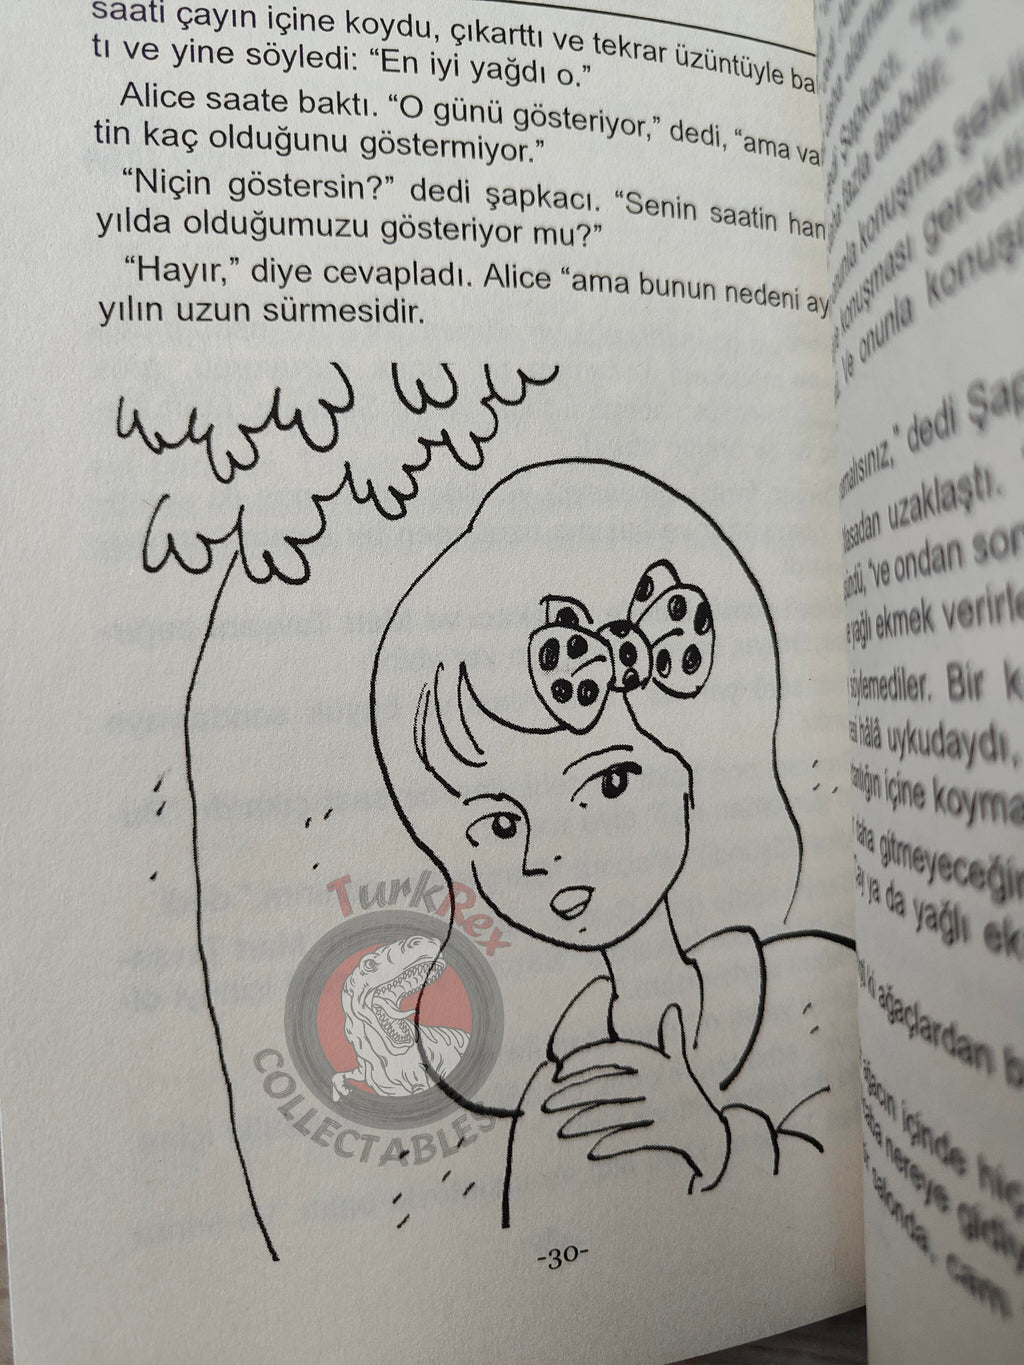 saati çayın içine koydu, çıkarttı ve tekrar üzüntüyle ba
tı ve yine söyledi: “En iyi yağdı o.”
Alice saate baktı. “O günü gösteriyor,” dedi, “ama va
tin kaç olduğunu göstermiyor.”
“Niçin göstersin?” dedi şapkacı. “Senin saatin han
yılda olduğumuzu gösteriyor mu?”
“Hayır,” diye cevapladı. Alice “ama bunun nedeni ay
yılın uzun sürmesidir.
TurkRex
COLLECTABLES
-30-
fazla alabilir.”
konuşma şekli
konuşması gerekti
Ve onunla konuşu
dedi Şap
uzaklaştı.
“ve ondan son
yağlı ekmek verirle
söylemediler. Bir k
hâlâ uykudaydı,
içine koyma
daha gitmeyeceğin
ya da yağlı ek
ki ağaçlardan b
ağacın içinde hiç
nereye gidiy
salonda, cam